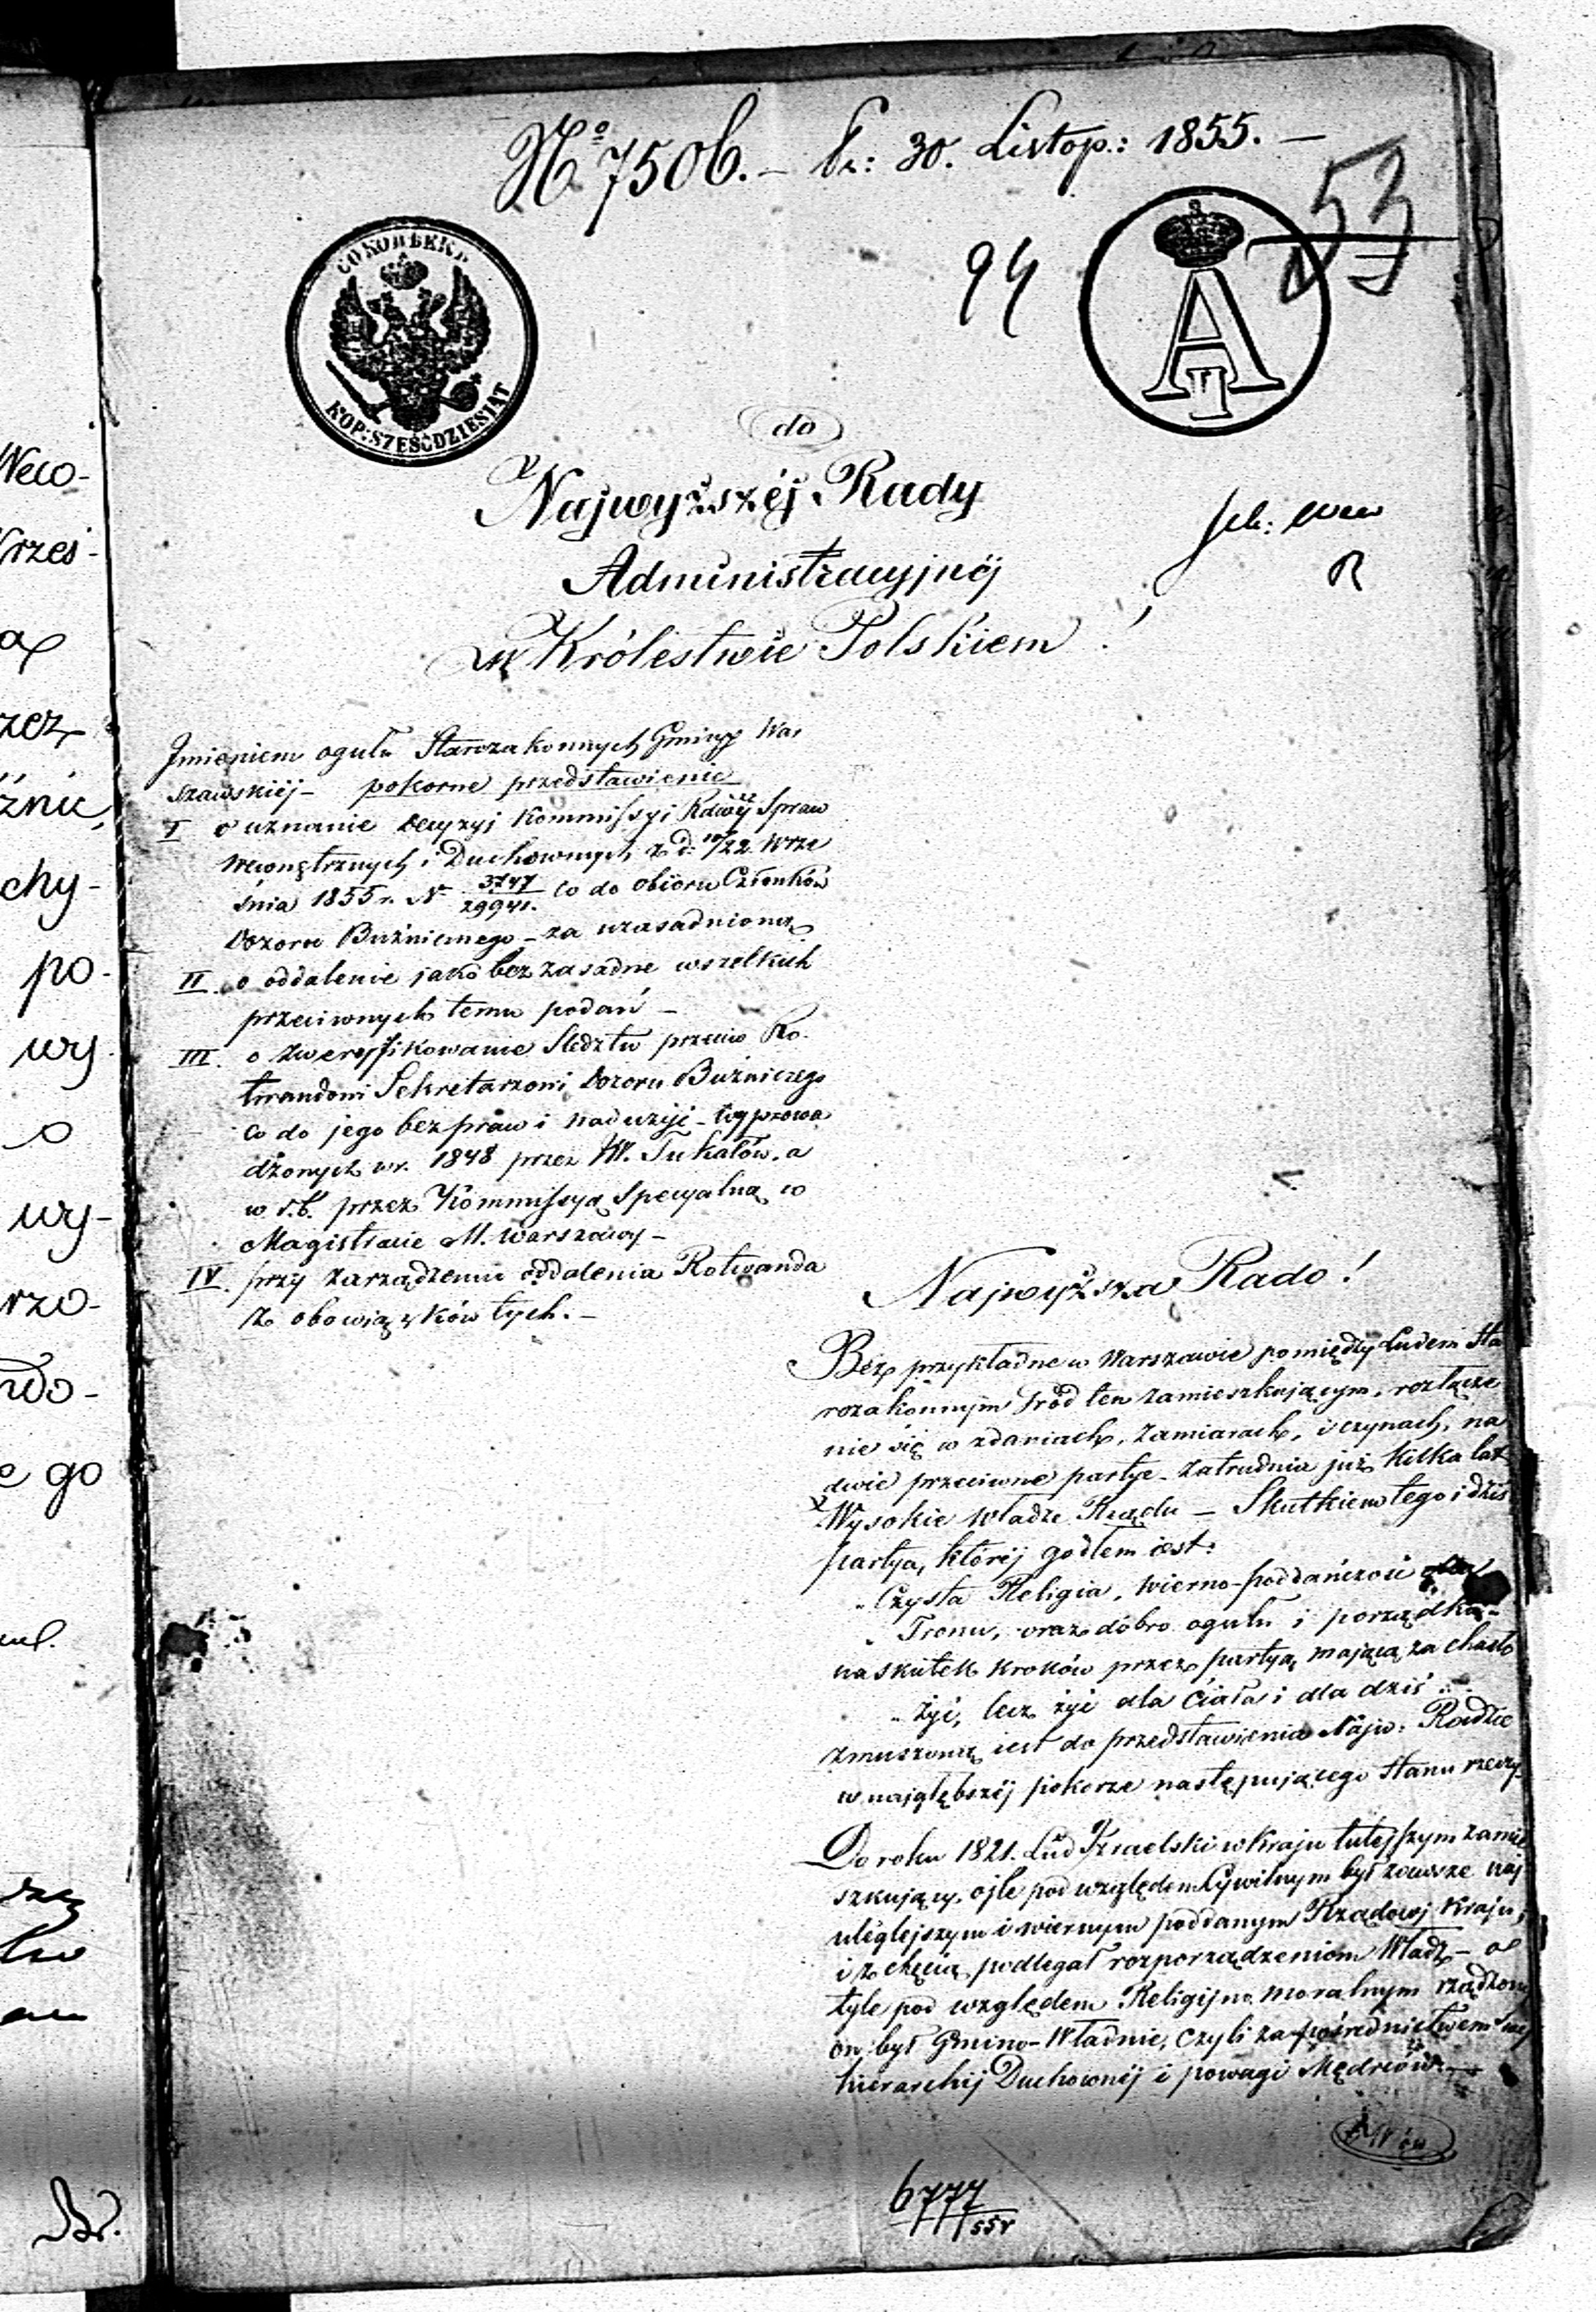 No 7506. – Pr: 30. Listop.: 1855. –
53
94
СОКОПѢЕКЪ
KOP: SZEŚĆDZIESIĄT
A
II
do
Najwyższéj Rady
Administracyjnéj
w Królestwie Polskiem!
R
Jmieniem ogułu Starozakonnych Gminy War
szawskiéj – pokorne przedstawienie
I o uznanie Decyzyi Kommissyi Rdwéj Spraw
Wewnętrznych i Duchownych z d: 10/22 Wrze
śnia 1855 r. N 3747/29941. co do obioru Członków
Dozoru Bużnicznego – za uzasadnioną
II o oddalenie jako bezzasadne wszelkich
przeciwnych temu podań –
III o zweryfikowanie Sledztw przeciw Ro-
twandowi Sekretarzowi Dozoru Bużniczego
co do jego bezpraw i nadużyć – wyprowa
dzonych w r. 1848 przez W. Tukałów, a
w r.b. przez Kommissyą Specyalną w
Magistracie M. Warszawy –
IV przy zarządzeniu oddalenia Rotwanda
z obowiązków tych. –
Najwyższa Rado!
Bez przykładne w Warszawie pomiędzy Ludem Sta
rozakonnym Gród ten zamieszkującym, rozłącze
nie się w zdaniach, zamiarach, i czynach, na
dwie przeciwne partye – zatrudnia już kilka lat
Wysokie Władze Rządu – Skutkiem tego i dziś
partya, któréj godłem iest:
„Czysta Religia, wierno-poddańczość
„Tronu, oraz dobro ogułu i porządku –
na skutek kroków przez partyą mającą za chasło
„Żyć, lecz żyć dla Ciała i dla dziś"
zmuszoną iest do przedstawienia Najw: Radzie
w najgłębszéj pokorze następującego Stanu rzeczy.
Do roku 1821. Lud Izraelski w Kraju tutejszym zamie
szkujący, ojle pod względem Cywilnym był zawsze naj
uleglejszym i wiernym poddanym Rządowj Kraju,
i z chęcią podlegał rozporządzeniom Władz – o
tyle pod względem Religijno moralnym rządzony
on był Gmino-Władnie, czyli za pośrednictwem swej
hierarchij Duchownéj i powagi Mędrców –
6777/55r
Weco-
Krześ-
rzez
źnic,
chy-
po-
wy
o
wy-
rzo-
wdo-
e go
Br.